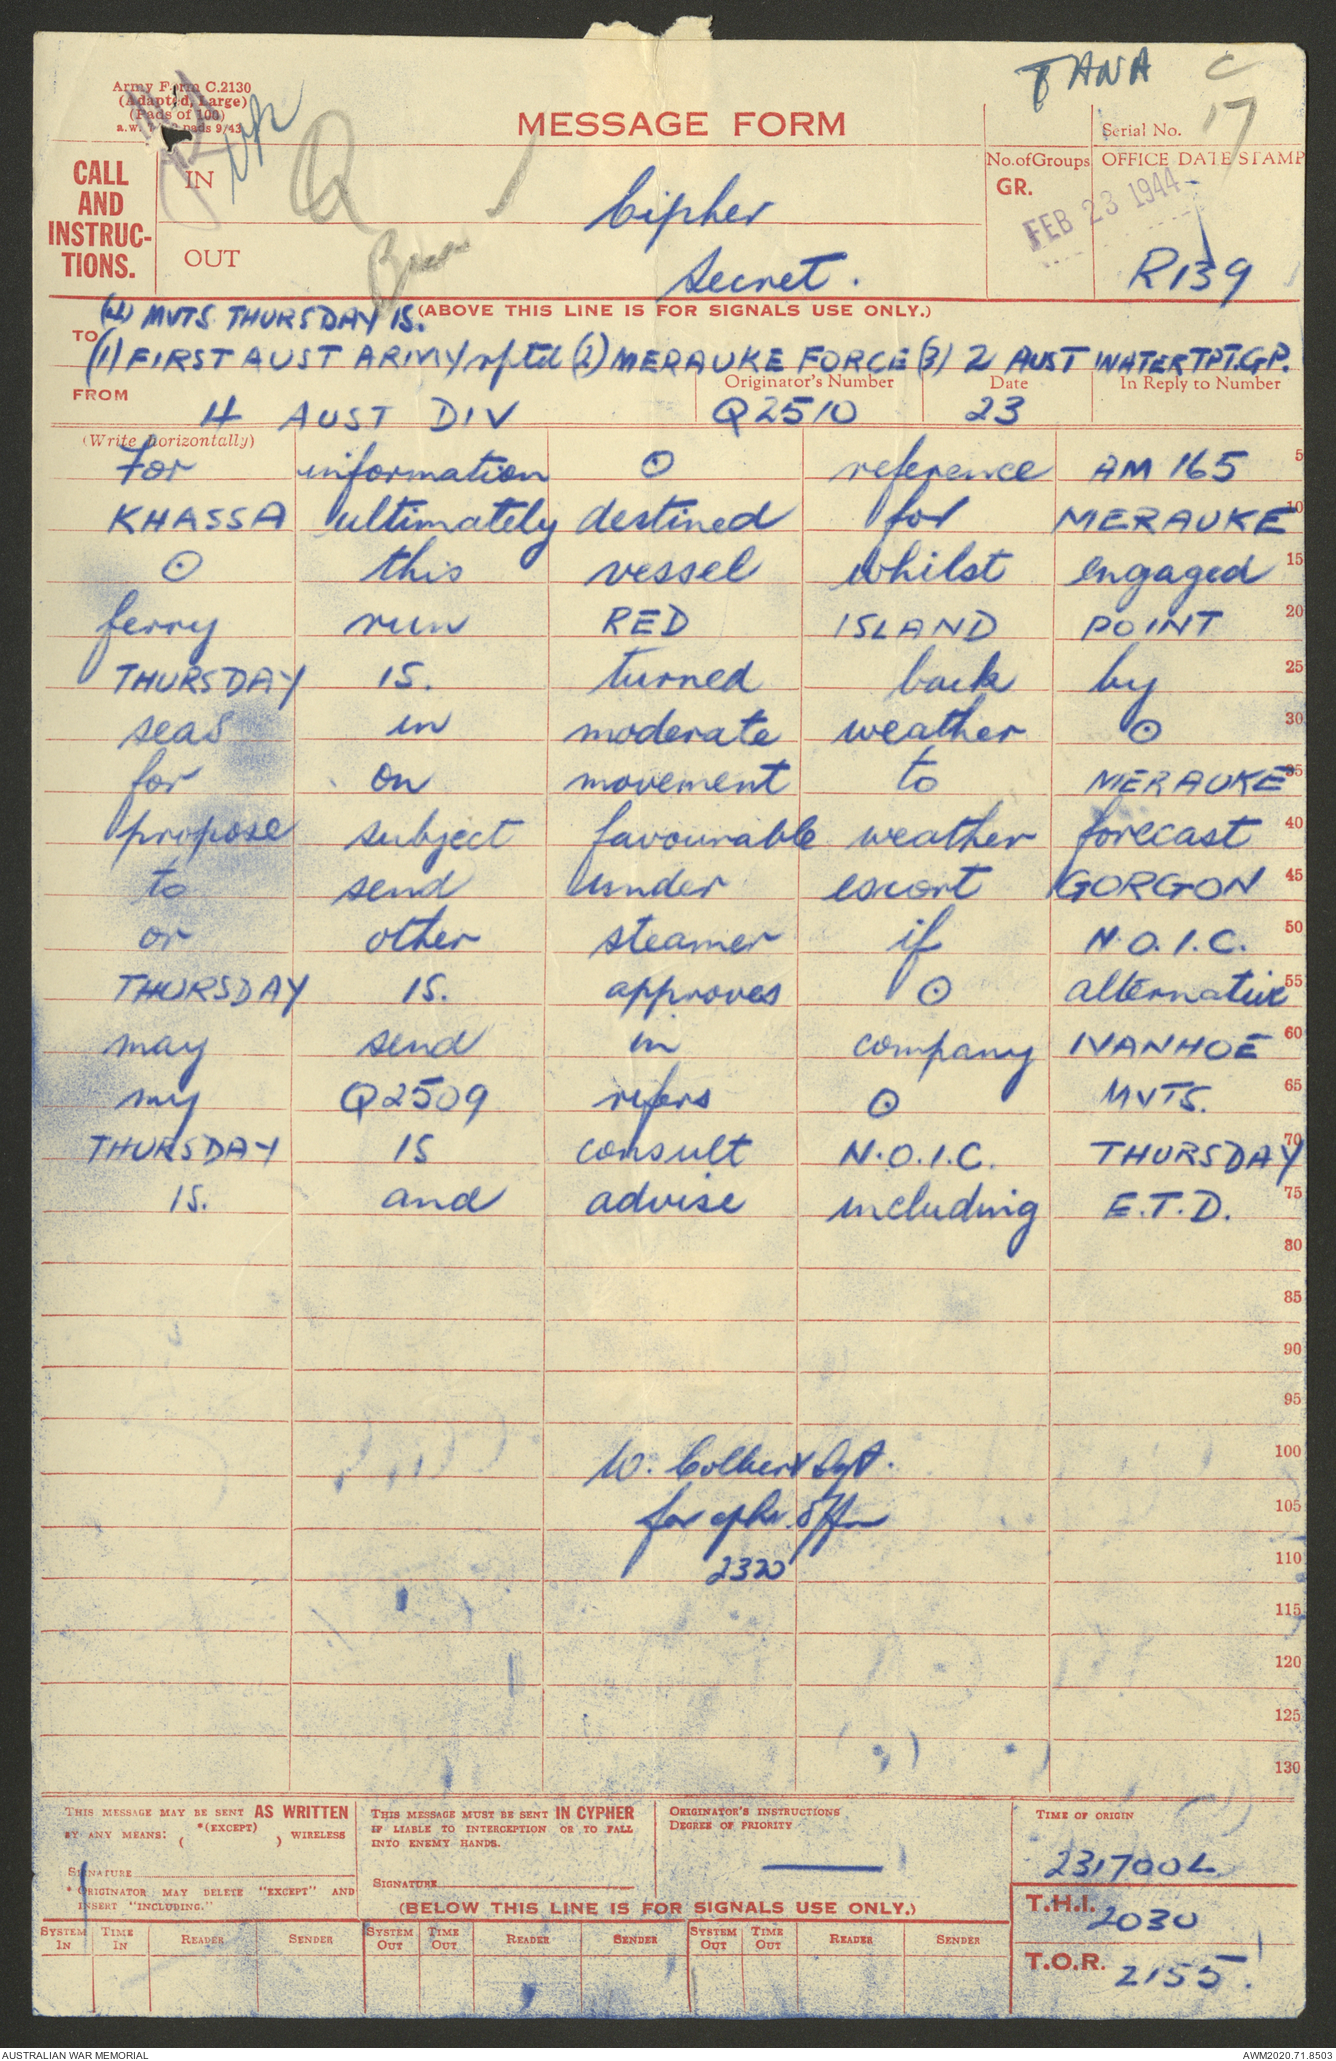 TANA C
Army Form C.2130
(Adapted, Large)
(Pads of 100)
pads 9/43
MESSAGE FORM
Serial No. 17
CALL
AND
INSTRUC-
TIONS.
IN
OUT
Q
Cipher
Secret.
No. of Groups
GR.
OFFICE DATE STAMP
FEB 23 1944
R139
(4) MVTS THURSDAY IS.
(ABOVE THIS LINE IS FOR SIGNALS USE ONLY.)
TO (1) FIRST AUST ARMY rptd (2) MERAUKE FORCE (3) 2 AUST WATER TPT. GP.
FROM 4 AUST DIV
Originator's Number Q2510
Date 23
In Reply to Number
(Write horizontally)
For information ⊙ reference AM 165 5
KHASSA ultimately destined for MERAUKE 10
⊙ this vessel whilst engaged 15
ferry run RED ISLAND POINT 20
THURSDAY IS. turned back by 25
seas in moderate weather ⊙ 30
for on movement to MERAUKE 35
propose subject favourable weather forecast 40
to send under escort GORGON 45
or other steamer if N.O.I.C. 50
THURSDAY IS. approves ⊙ alternative 55
may send in company IVANHOE 60
my Q2509 refers ⊙ MVTS. 65
THURSDAY IS consult N.O.I.C. THURSDAY 70
IS. and advise including E.T.D. 75
80
85
90
95
W. Colbert Sgt. 100
for cphr. Offr 105
2320 110
115
120
125
130
THIS MESSAGE MAY BE SENT AS WRITTEN
BY ANY MEANS: *(EXCEPT) ( ) WIRELESS
SIGNATURE
* ORIGINATOR MAY DELETE "EXCEPT" AND
INSERT "INCLUDING."
THIS MESSAGE MUST BE SENT IN CYPHER
IF LIABLE TO INTERCEPTION OR TO FALL
INTO ENEMY HANDS.
SIGNATURE
ORIGINATOR'S INSTRUCTIONS
DEGREE OF PRIORITY
TIME OF ORIGIN
231700L
(BELOW THIS LINE IS FOR SIGNALS USE ONLY.)
T.H.I. 2030
T.O.R. 2155.
SYSTEM IN TIME IN READER SENDER SYSTEM OUT TIME OUT READER SENDER SYSTEM OUT TIME OUT READER SENDER
AUSTRALIAN WAR MEMORIAL AWM2020.71.8503